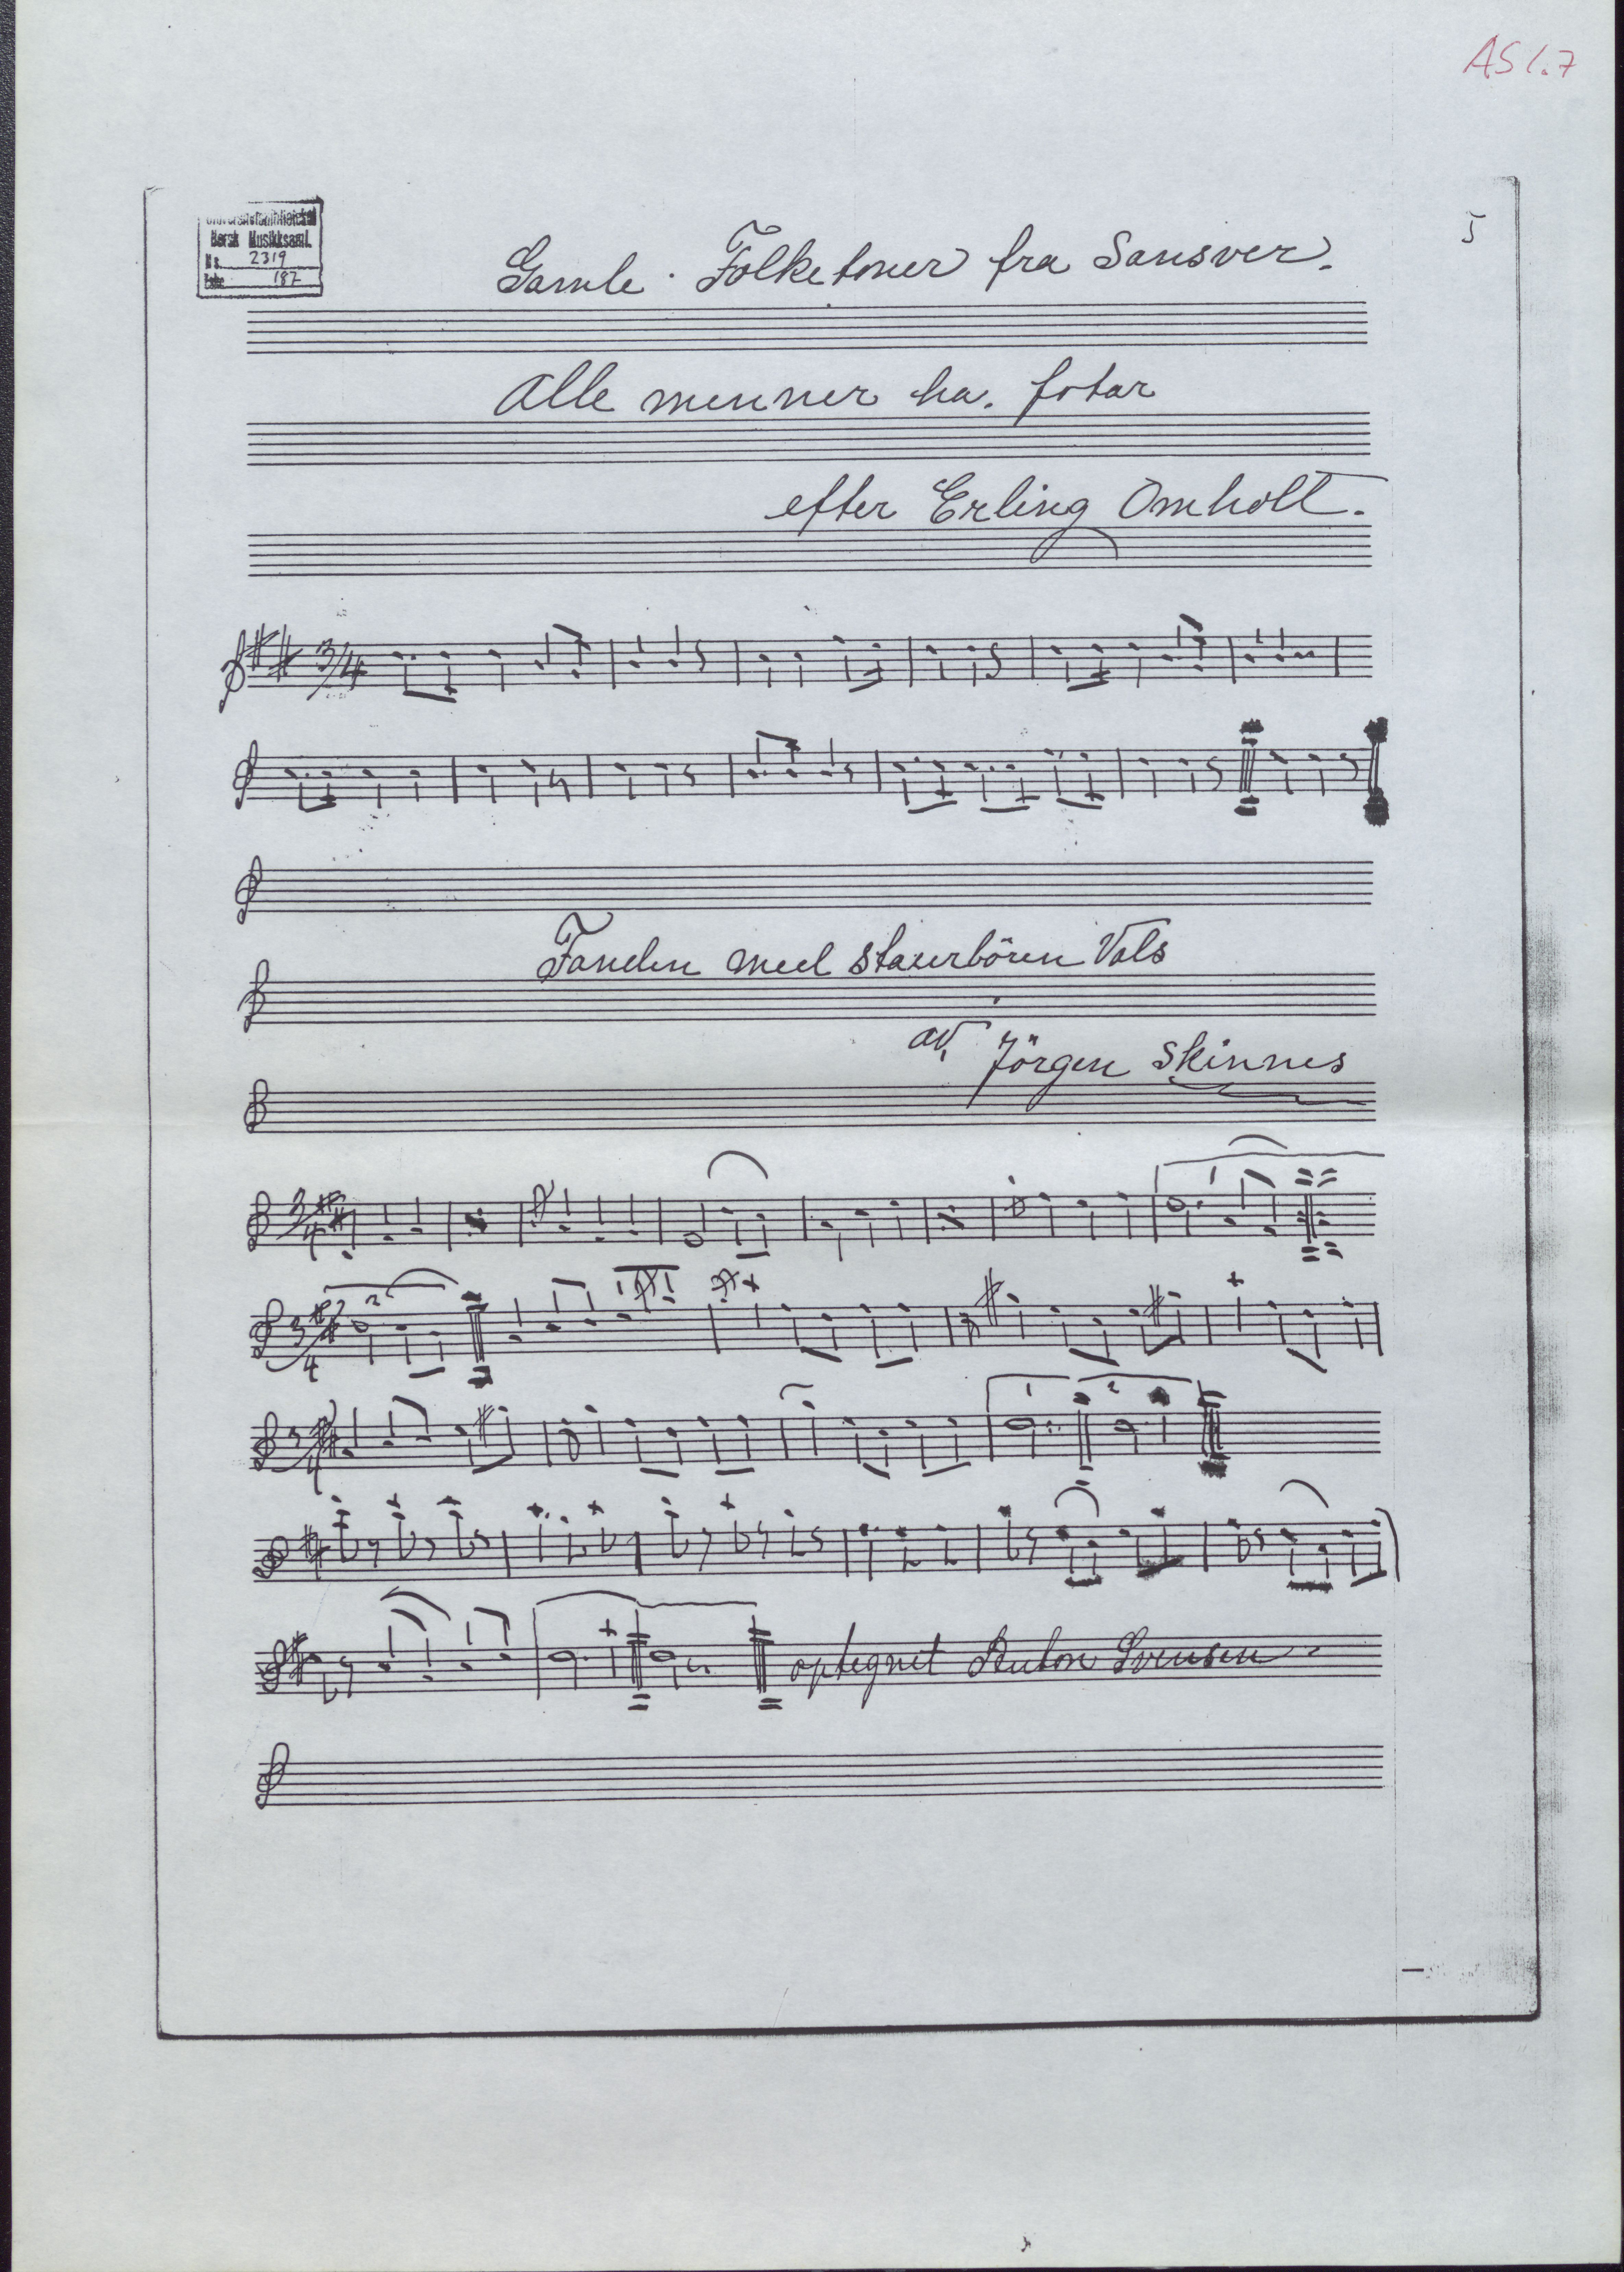 AS 1.7
5
Universitetsbiblioteket
Norsk Musikksaml.
Ms. 2319
187
Gamle Folketoner fra Sansver.
Alle menner ha. fotar
efter Erling Omholt.
3/4
Fanden med staurbören Vals
av, Jörgen Skinnes
3/4
1
3/4
2
3/4
1 2
optegnet Anton Svensen